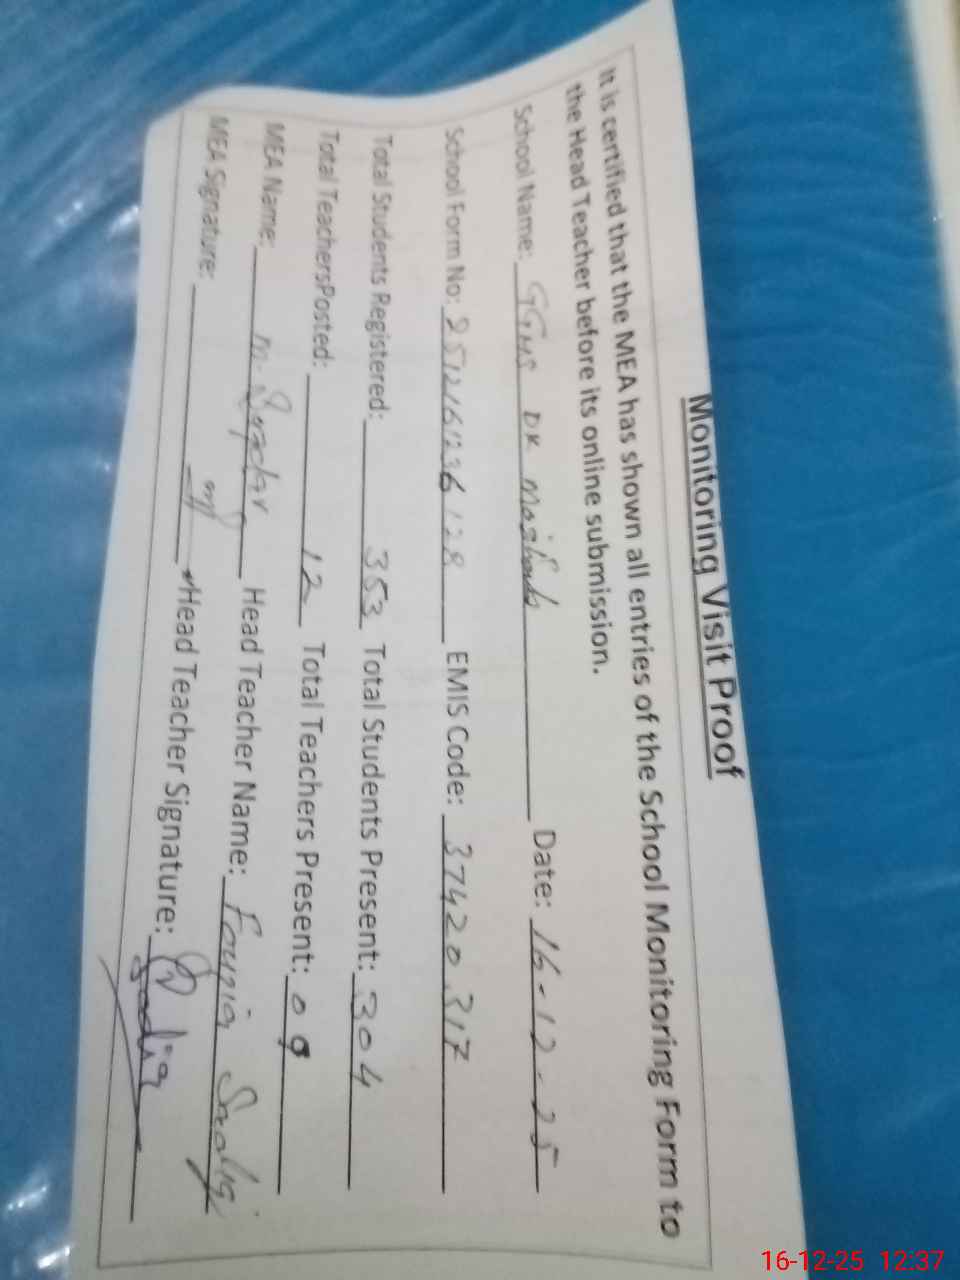 Monitoring Visit Proof
It is certified that the MEA has shown all entries of the School Monitoring Form to
the Head Teacher before its online submission.
School Name: GGHS DK Mashords Date: 16-12-25
School Form No: 2512161236128 EMIS Code: 37420317
Total Students Registered: 353 Total Students Present: 304
Total TeachersPosted: 12 Total Teachers Present: 09
MEA Name: M. Head Teacher Name: Fouzia
MEA Signature: Head Teacher Signature:
16-12-25 12:37